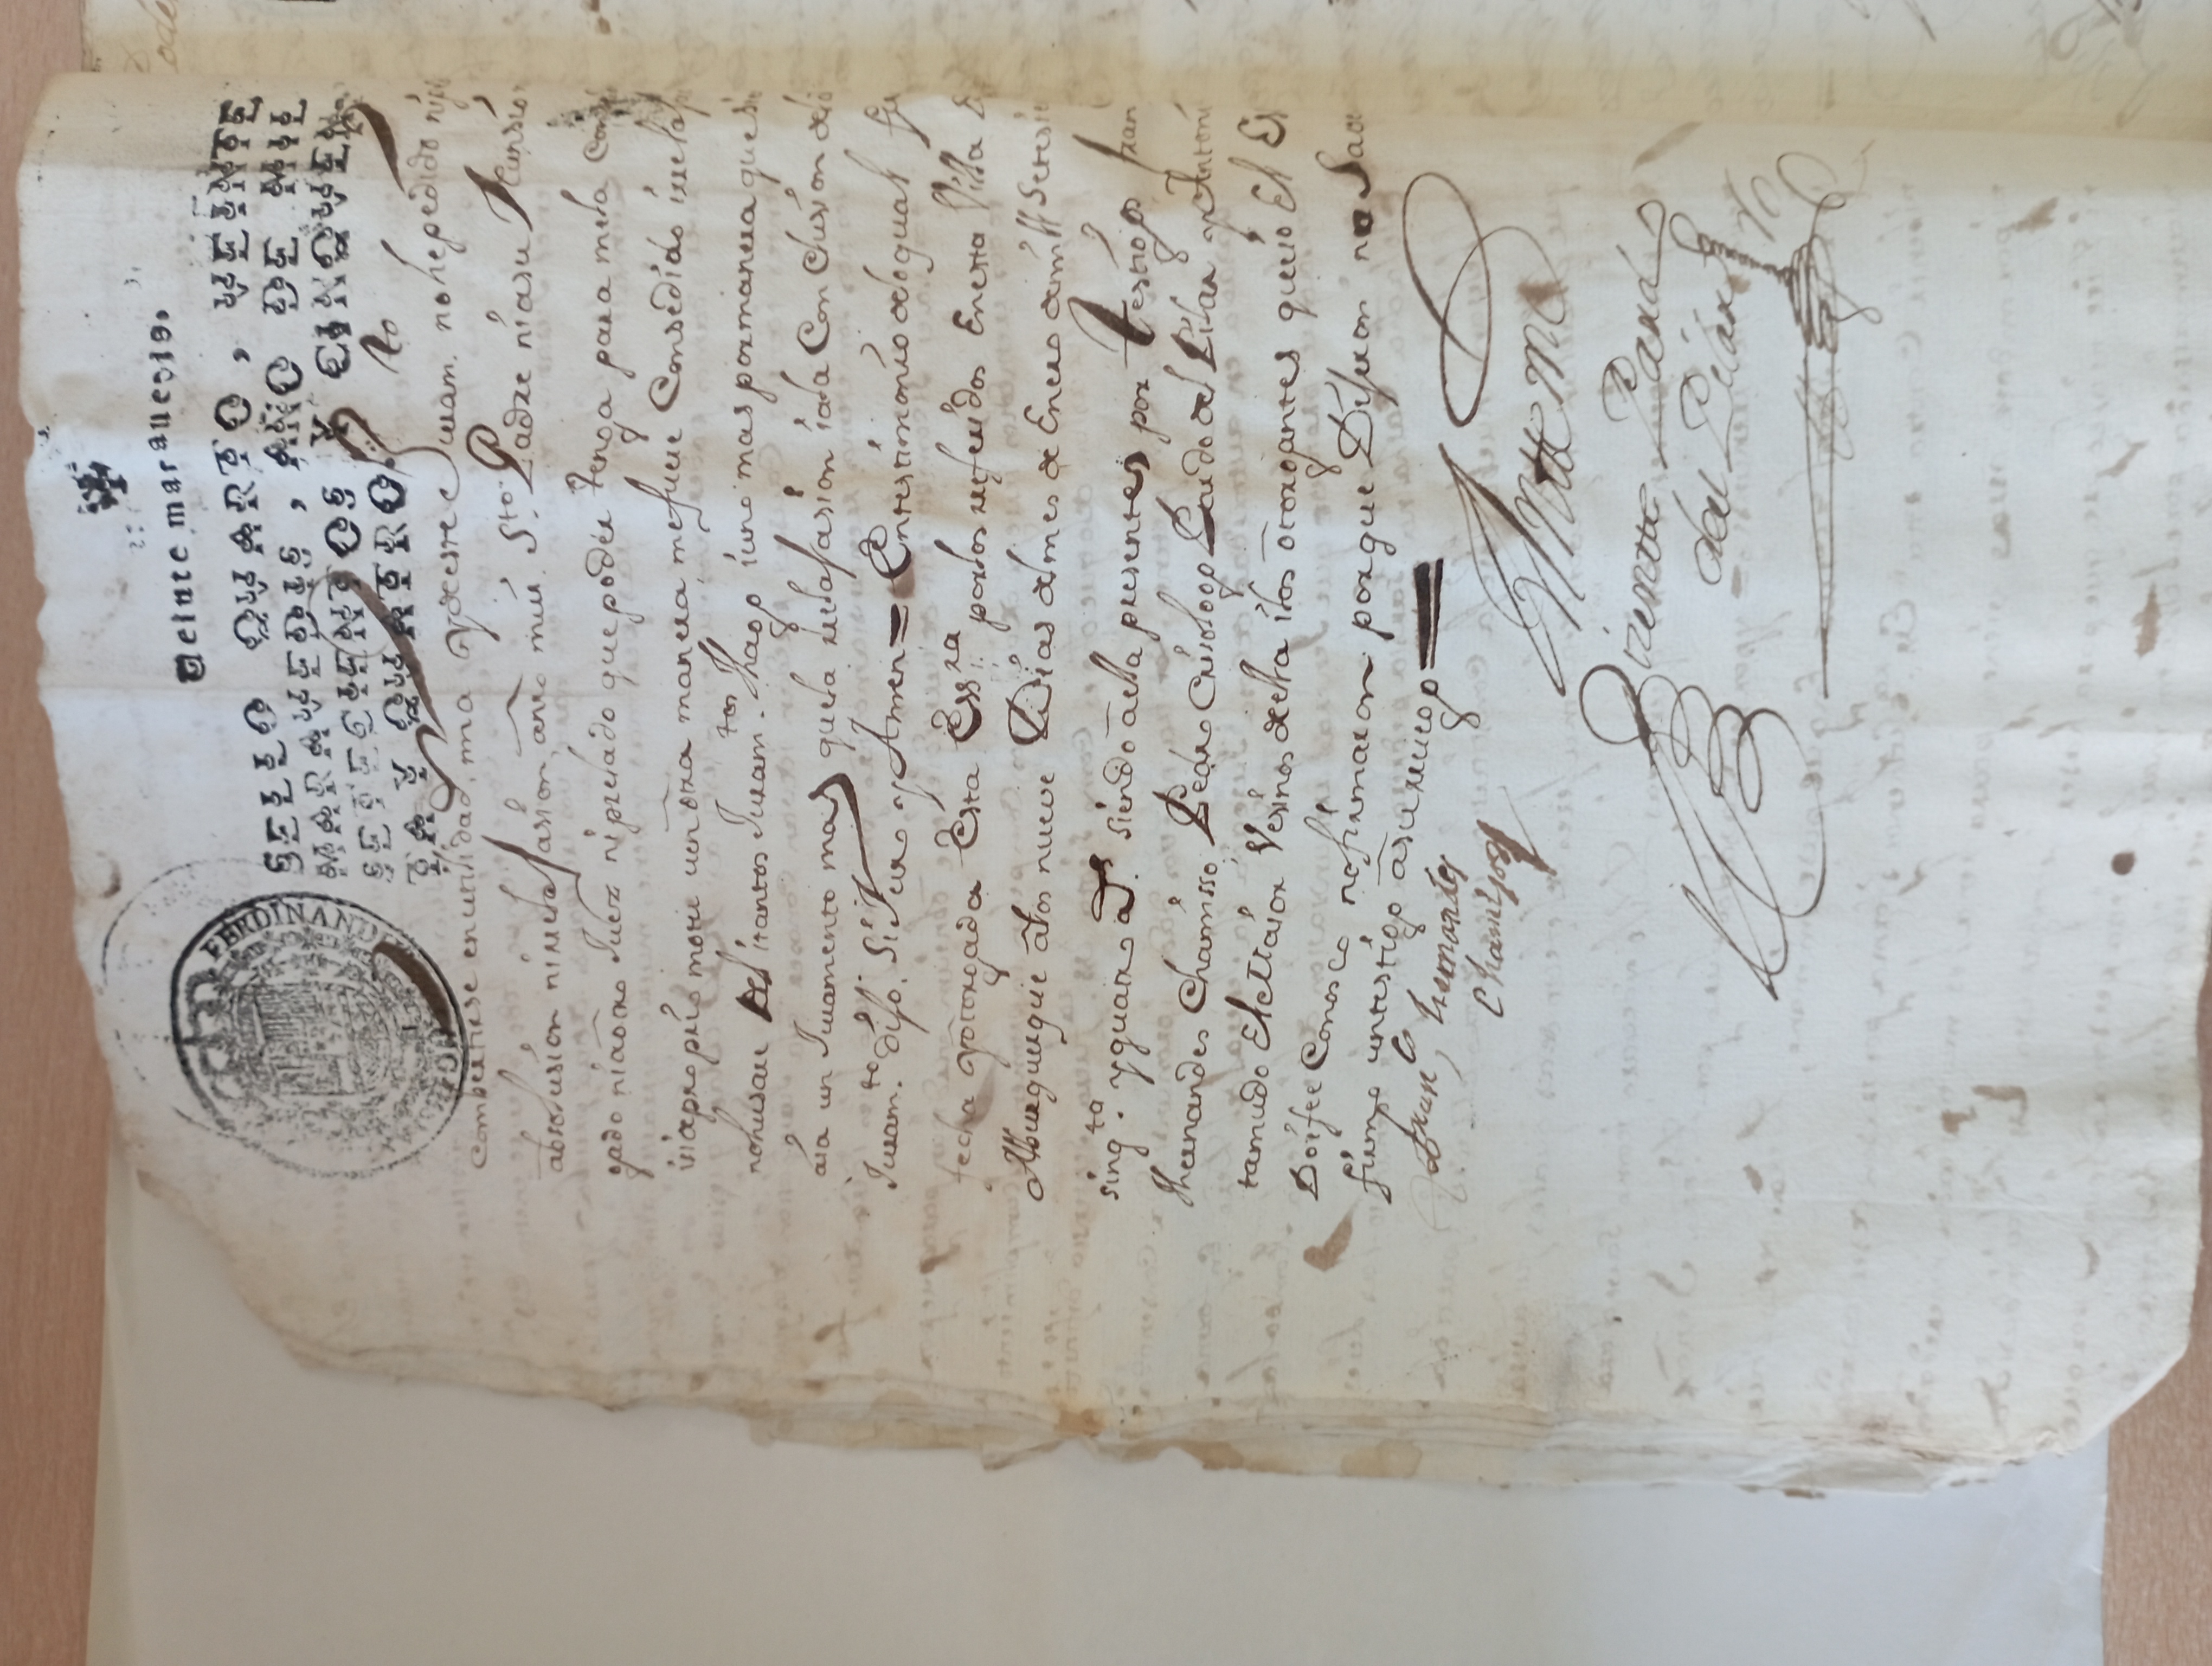 Veinte marauedis.
SELLO QVARTO, VEINTE
MARAVEDIS, AÑO DE MIL
SETECIENTOS Y CINQVEN-
TA Y QVATRO.
FERDINAND
combertirse en utilidad, mia y de este Juram.to no he pedido ni
absolusion ni relasasion, ante mui S.to Padre ni a su Nunsio
gado ni a otro Juez ni prelado que poder tenga para mela
i si a proprio motu u en otra manera me fuere Consedido i
no husare del i tantos Juram.tos Hago i uno mas por manera que
aia un Juramento mas que la relasasion i a la Conclusion de
Juram.to diso, Si Juro y Amen = En testimonio de lo qual
fecha y otorgada Esta Ess.ra por los referidos En esta Villa
Alburquerque a los nueve Dias del mes de Enero de mill Setesie
sinq.ta y quatro a.s siendo a ella presentes por testigos fran
Hernandes Chamisso Pedro Crisologo Pardo del Pilar y Antoni
tamudo El Maior Vesinos de ella i los otorgantes que io El Es
Doi fee Conosco no firmaron porque Diseron no Sa
firmo un testigo a su ruego =
Fran.co Hernandes
Chamisso
Antte mi
Visentte Pardo
del Pilar